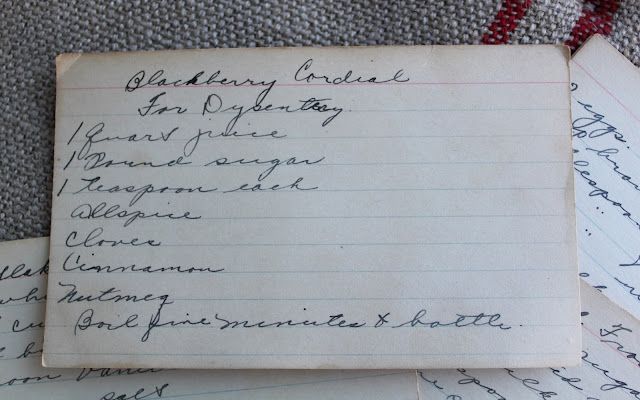 Blackberry Cordial
For Dysentery.
1 Quart juice
1 Pound sugar
1 teaspoon each
allspice
Cloves
Cinnamon
Nutmeg
Boil five minutes & bottle.
eggs.
salt